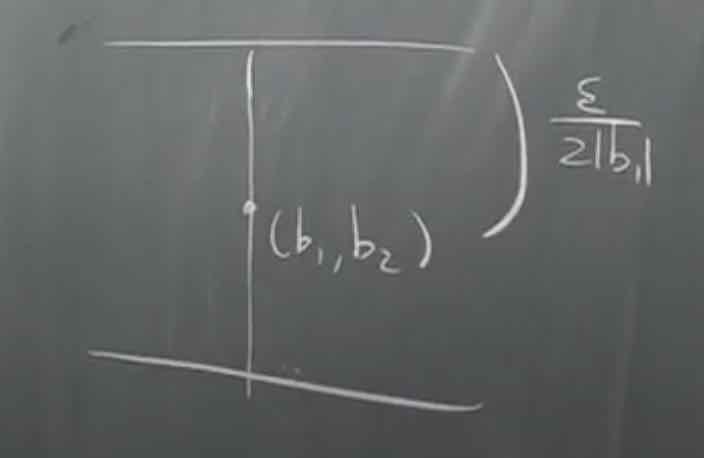 ε
2|b₁|
(b₁, b₂)